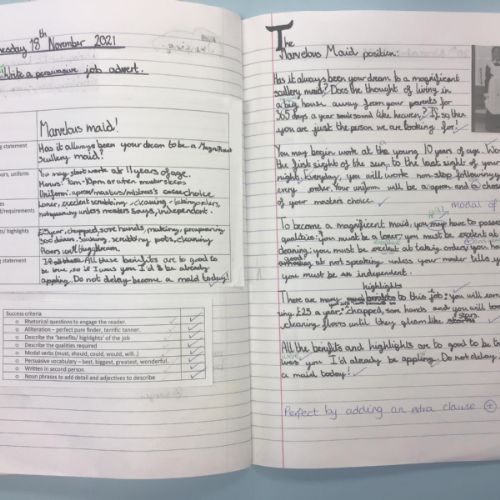 18th November 2021
Write a persuasive job advert.
Marvelous maid!
statement
Has it always been your dream to be a Magnificent
Scullery maid?
uniform
You may start work at 11 years of age.
Hours: 7am-10pm or when master sleeps
Uniform: apron/
choice
Lover, excelent scrubbing, cleaning, taking orders,
not speaking unless master says, independent.
highlights
£25 year, chapped, sort hands, making, preparing
scrubbing pots, cleaning
floors
statement
All these benefits are to good to
be true, so if I was you I'd be already
applying. Do not delay-become a maid today!
Success criteria
Rhetorical questions to engage the reader.
Alliteration – perfect pure finder, terrific tanner.
Describe the 'benefits/ highlights' of the job
Describe the qualities required
Modal verbs (must, should, could, would, will..)
Persuasive vocabulary – best, biggest, greatest, wonderful..
Written in second person
Noun phrases to add detail and adjectives to describe
The
Marvelous Maid position:
Has it always been your dream to a magnificent
scullery maid? Does the thought of living in
a big house away from your parents for
365 days a year sound like heaven? If so then
you are just the person we are looking for!
You may begin work at the young 10 years of age. Wor
the first sight of the sun, to the last sight of your
night. Everyday, you will work non-stop following
every order. Your uniform will be a apron and a
of your masters choice
modal
To become a magnificent maid, you may have to posses
qualities: You must be a lover; you must be excelent at
cleaning; you must be excelent at taking orders; you
good
at not speaking unless your master tells
you must be an independent.
highlights
There are many benefits to this job: you will
£25 a year; chapped, sore hands and you will
cleaning floors until they gleam like
stars
All the benefits and highlights are to good to be
was you I'd already be applying. Do not delay
a maid today!
Perfect by adding an extra clause